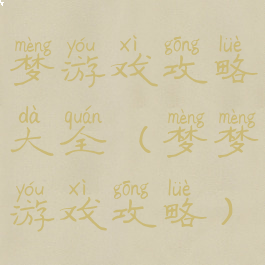 mèng yóu xì gōng lüè
梦游戏攻略
dà quán mèng mèng
大全(梦梦
yóu xì gōng lüè
游戏攻略)